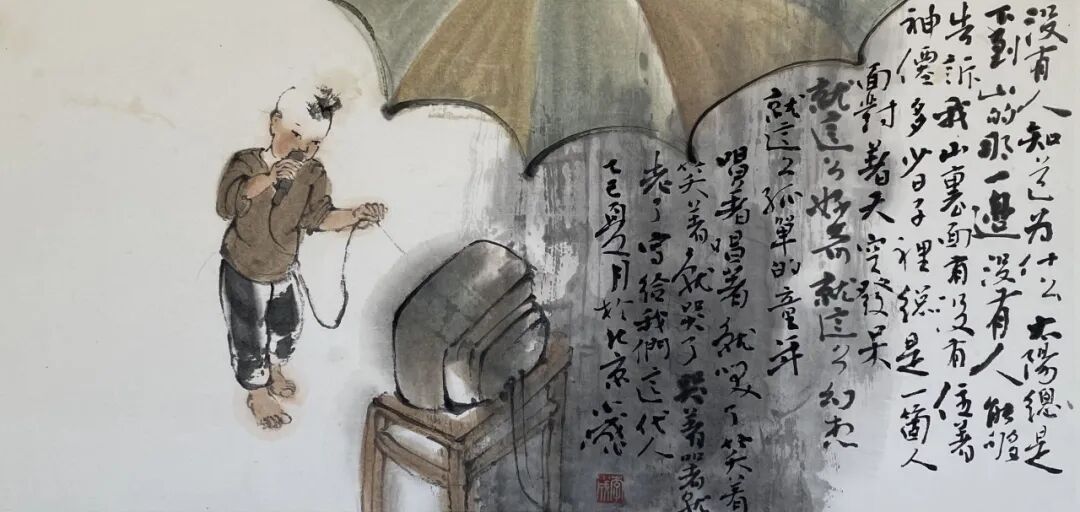 没有人知道为什么太陽總是
下到山的那一邊没有人能够
告訴我山裏面有没有住着
神僊多少日子裡總是一箇人
面對着天空發呆
就這么好奇就這么幻想
就這么孤單的童年
唱着唱着就笑了笑着
笑着就哭了哭着哭着就
老了寫给我們這代人
乙巳夏月於北京